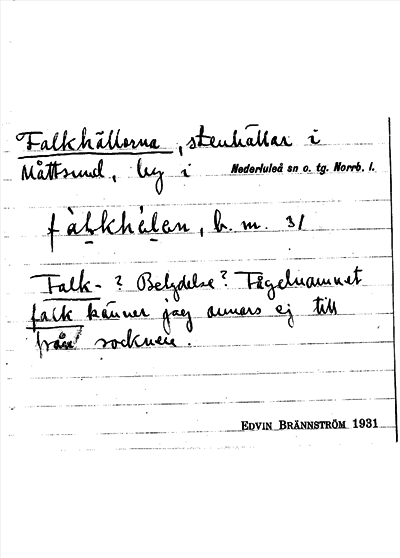 Falkhällorna, stenhällar i
Måttsund, by i Nederluleå sn o. tg. Norrb. l.
fàl̥khẹ́lẹn, b. m. 31
Falk- ? Betydelse? Fågelnamnet
falk känner jag annars ej till
från socknen.
EDVIN BRÄNNSTRÖM 1931